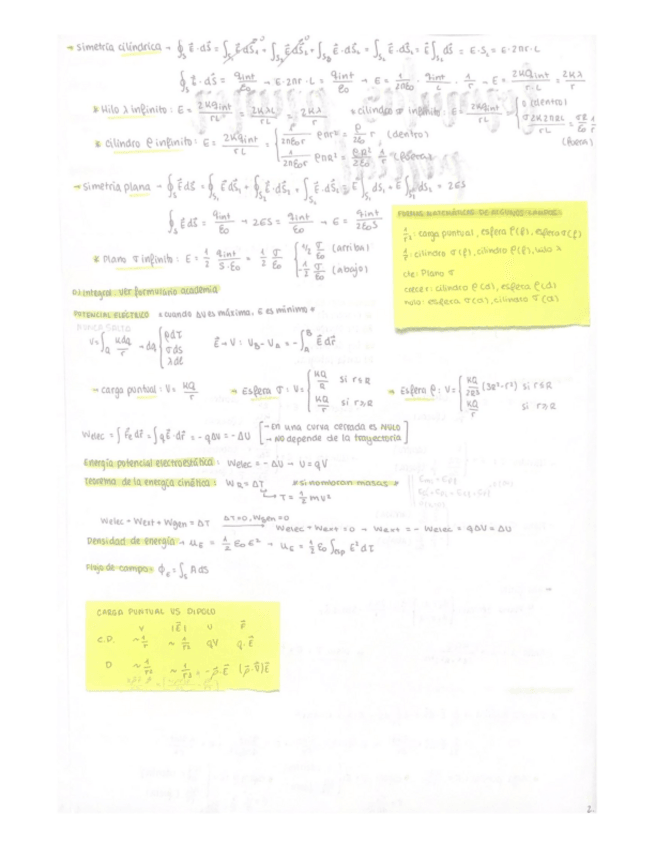 → Simetría cilíndrica → ∮ₛ E⃗·dS⃗ = ∫ₛ₁ E⃗·dS⃗₁ + ∫ₛ₂ E⃗·dS⃗₂ + ∫ₛ₃ E⃗·dS⃗ = ∫ₛ E⃗·dS⃗ = E ∫ₛ dS = E·S = E·2πr·L
∮ₛ E⃗·dS⃗ = qint/ε₀ → E·2πr·L = qint/ε₀ → E = 1/2πε₀ · qint/L · 1/r → E = 2Kqint/rL = 2Kλ/r
* Hilo λ infinito: E = 2Kqint/rL = 2KλL/rL = 2Kλ/r
* cilindro σ infinito: E = 2Kqint/rL = { 0 (dentro)
σ2K2πRL/rL = σR/ε₀ 1/r (fuera)
* cilindro ρ infinito: E = 2Kqint/rL = { 1/2πε₀r ρπr² = ρ/2ε₀ r (dentro)
1/2πε₀r ρπR² = ρR²/2ε₀ 1/r (fuera)
→ Simetría plana → ∮ₛ E⃗dS⃗ = ∮ₛ₁ E⃗·dS⃗₁ + ∮ₛ₂ E⃗·dS⃗₂ + ∫ₛ E⃗·dS⃗ = E∫ₛ₁ dS₁ + E∫ₛ₂ dS₂ = 2ES
∮ₛ E⃗dS⃗ = qint/ε₀ → 2ES = qint/ε₀ → E = qint/2ε₀S
* Plano σ infinito: E = 1/2 qint/S·ε₀ = 1/2 σ/ε₀ { 1/2 σ/ε₀ (arriba)
-1/2 σ/ε₀ (abajo)
FORMAS MATEMÁTICAS DE ALGUNOS CAMPOS:
1/r²: carga puntual, esfera ρ(f), esfera σ(f)
1/r: cilindro σ(f), cilindro ρ(f), hilo λ
cte: Plano σ
crecer: cilindro ρ(d), esfera ρ(d)
nulo: esfera σ(d), cilindro σ(d)
D) Integral. Ver formulario academia
POTENCIAL ELÉCTRICO * cuando ΔU es máxima, E es mínima *
NUNCA SALTA
V = ∫Q Kdq/r → dq { ρdτ
σds
λdl
E⃗ → V: V_B - V_A = -∫ᴬᴮ E⃗ dr⃗
→ carga puntual: V = KQ/r
→ Esfera σ: V = { KQ/R si r≤R
KQ/r si r≥R
→ Esfera ρ: V = { KQ/2R³ (3R²-r²) si r≤R
KQ/r si r≥R
Welec = ∫F⃗ₑdr⃗ = ∫qE⃗·dr⃗ = -qΔV = -ΔU [→ En una curva cerrada es NULO
→ NO depende de la trayectoria]
Energía potencial electroestática: Welec = -ΔU → U = qV
Teorema de la energía cinética: W_R = ΔT * si nombran masas *
↳ T = 1/2 mv²
Welec + Wext + Wgen = ΔT  ΔT=0, Wgen=0 → Welec + Wext = 0 → Wext = -Welec = qΔV = ΔU
Densidad de energía → u_E = 1/2 ε₀E² → U_E = 1/2 ε₀ ∫esp E² dτ
Flujo de campo: ϕ_E = ∫ₛ AdS
CARGA PUNTUAL VS DIPOLO
V |E⃗| U F⃗
C.P. ~1/r ~1/r² qV q·E⃗
D ~1/r² ~1/r³ = -p⃗·E⃗ (p⃗·∇⃗)E⃗
2